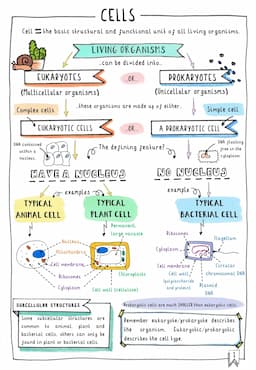 CELLS
Cell = the basic structural and functional unit of all living organisms.
LIVING ORGANISMS
can be divided into..
EUKARYOTES
OR..
PROKARYOTES
(Multicellular organisms)
(Unicellular organisms)
Complex cells
..these organisms are made up of either..
Simple cell
EUKARYOTIC CELLS
OR..
A PROKARYOTIC CELL
DNA contained
within a
nucleus.
The defining feature?
DNA floating
free in the
cytoplasm.
HAVE A NUCLEUS
NO NUCLEUS
examples
example
TYPICAL
ANIMAL CELL
TYPICAL
PLANT CELL
TYPICAL
BACTERIAL CELL
Permanent,
large vacuole
Nucleus
Mitochondria
Cell membrane
Ribosomes
Cytoplasm
Chloroplasts
Cell wall (cellulose)
Ribosomes
Flagellum
Cytoplasm
Cell membrane
Circular
chromosomal DNA
Cell wall
(polysaccharide
and protein)
Plasmid
DNA
SUBCELLULAR STRUCTURES
Some subcellular structures are
common to animal, plant and
bacterial cells, others can only be
found in plant or bacterial cells.
Prokaryotic cells are much SMALLER than eukaryotic cells.
Remember eukaryote/prokaryote describes
the organism. Eukaryotic/prokaryotic
describes the cell type.
1